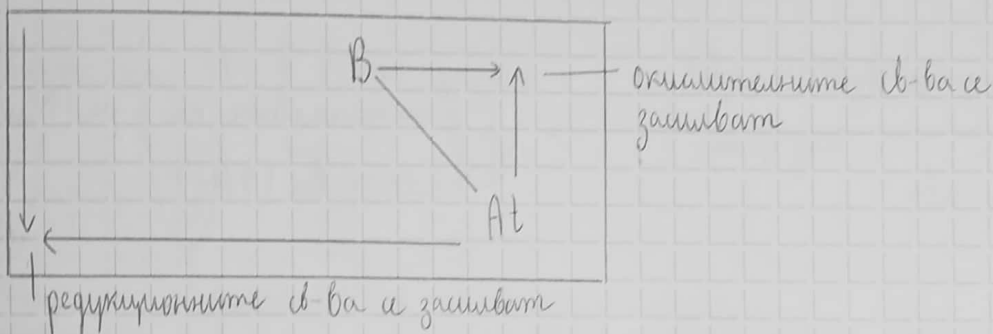 B
окислителните св-ва се
засилват
At
редукционните св-ва се засилват